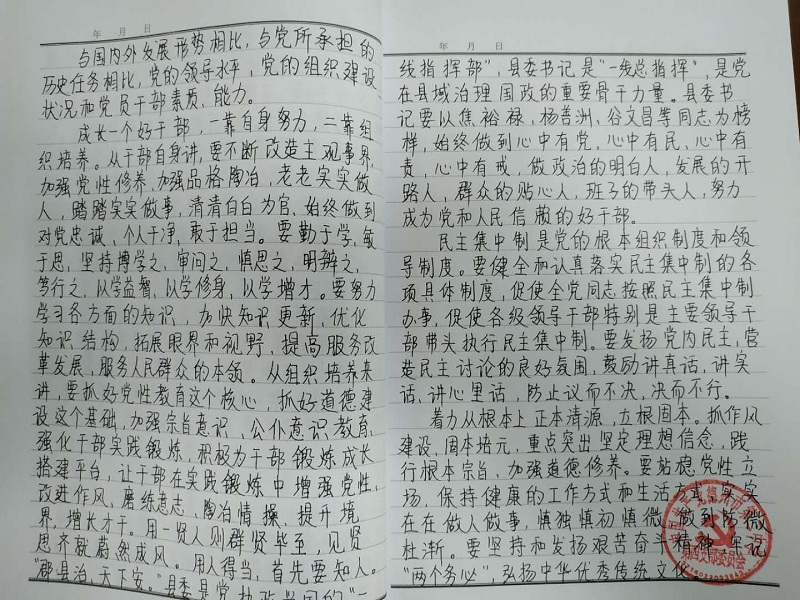 年 月 日
与国内外发展形势相比，与党所承担的
历史任务相比，党的领导水平，党的组织建设
状况和党员干部素质、能力。
成长一个好干部，一靠自身努力，二靠组
织培养。从干部自身讲，要不断改造主观事界、
加强党性修养、加强品格陶冶，老老实实做
人，踏踏实实做事，清清白白为官。始终做到
对党忠诚、个人干净、敢于担当。要勤于学、敏
于思，坚持博学之、审问之、慎思之、明辨之、
笃行之，以学益智、以学修身、以学增才。要努力
学习各方面的知识，加快知识更新、优化
知识结构，拓展眼界和视野，提高服务改
革发展，服务人民群众的本领。从组织培养来
讲，要抓好党性教育这个核心，抓好道德建
设这个基础，加强宗旨意识、公仆意识教育。
强化干部实践锻炼，积极为干部锻炼成长
搭建平台，让干部在实践锻炼中增强党性、
改进作风、磨练意志、陶冶情操、提升境
界、增长才干。用一贤人则群贤毕至，见贤
思齐就蔚然成风。用人得当，首先要知人。
“郡县治，天下安。”县委是党执政兴国的“一
年 月 日
线指挥部”，县委书记是“一线总指挥”，是党
在县域治理国政的重要骨干力量。县委书
记要以焦裕禄、杨善洲、谷文昌等同志为榜
样，始终做到心中有党，心中有民，心中有
责，心中有戒，做政治的明白人，发展的开
路人，群众的贴心人，班子的带头人，努力
成为党和人民信赖的好干部。
民主集中制是党的根本组织制度和领
导制度。要健全和认真落实民主集中制的各
项具体制度，促使全党同志按照民主集中制
办事，促使各级领导干部特别是主要领导干
部带头执行民主集中制。要发扬党内民主，营
造民主讨论的良好氛围，鼓励讲真话，讲实
话，讲心里话，防止议而不决，决而不行。
着力从根本上正本清源，立根固本。抓作风
建设，固本培元，重点突出坚定理想信念，践
行根本宗旨、加强道德修养。要站稳党性立
场，保持健康的工作方式和生活方式，
在在做人做事，慎独慎初慎微，做到防微
杜渐。要坚持和发扬艰苦奋斗精神，
“两个务必”，弘扬中华优秀传统文化。